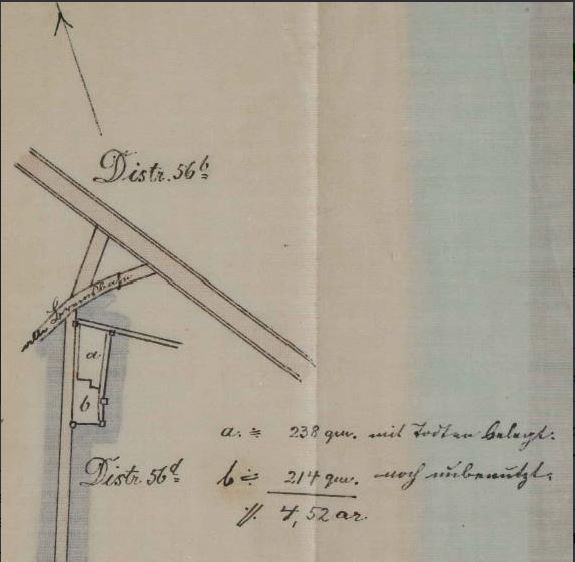 Distr. 56 b
alte
a
b
a. = 238 qm. mit Todten belegt.
b = 214 qm. noch unbenutzt.
Distr. 56 d
//. 4,52 ar